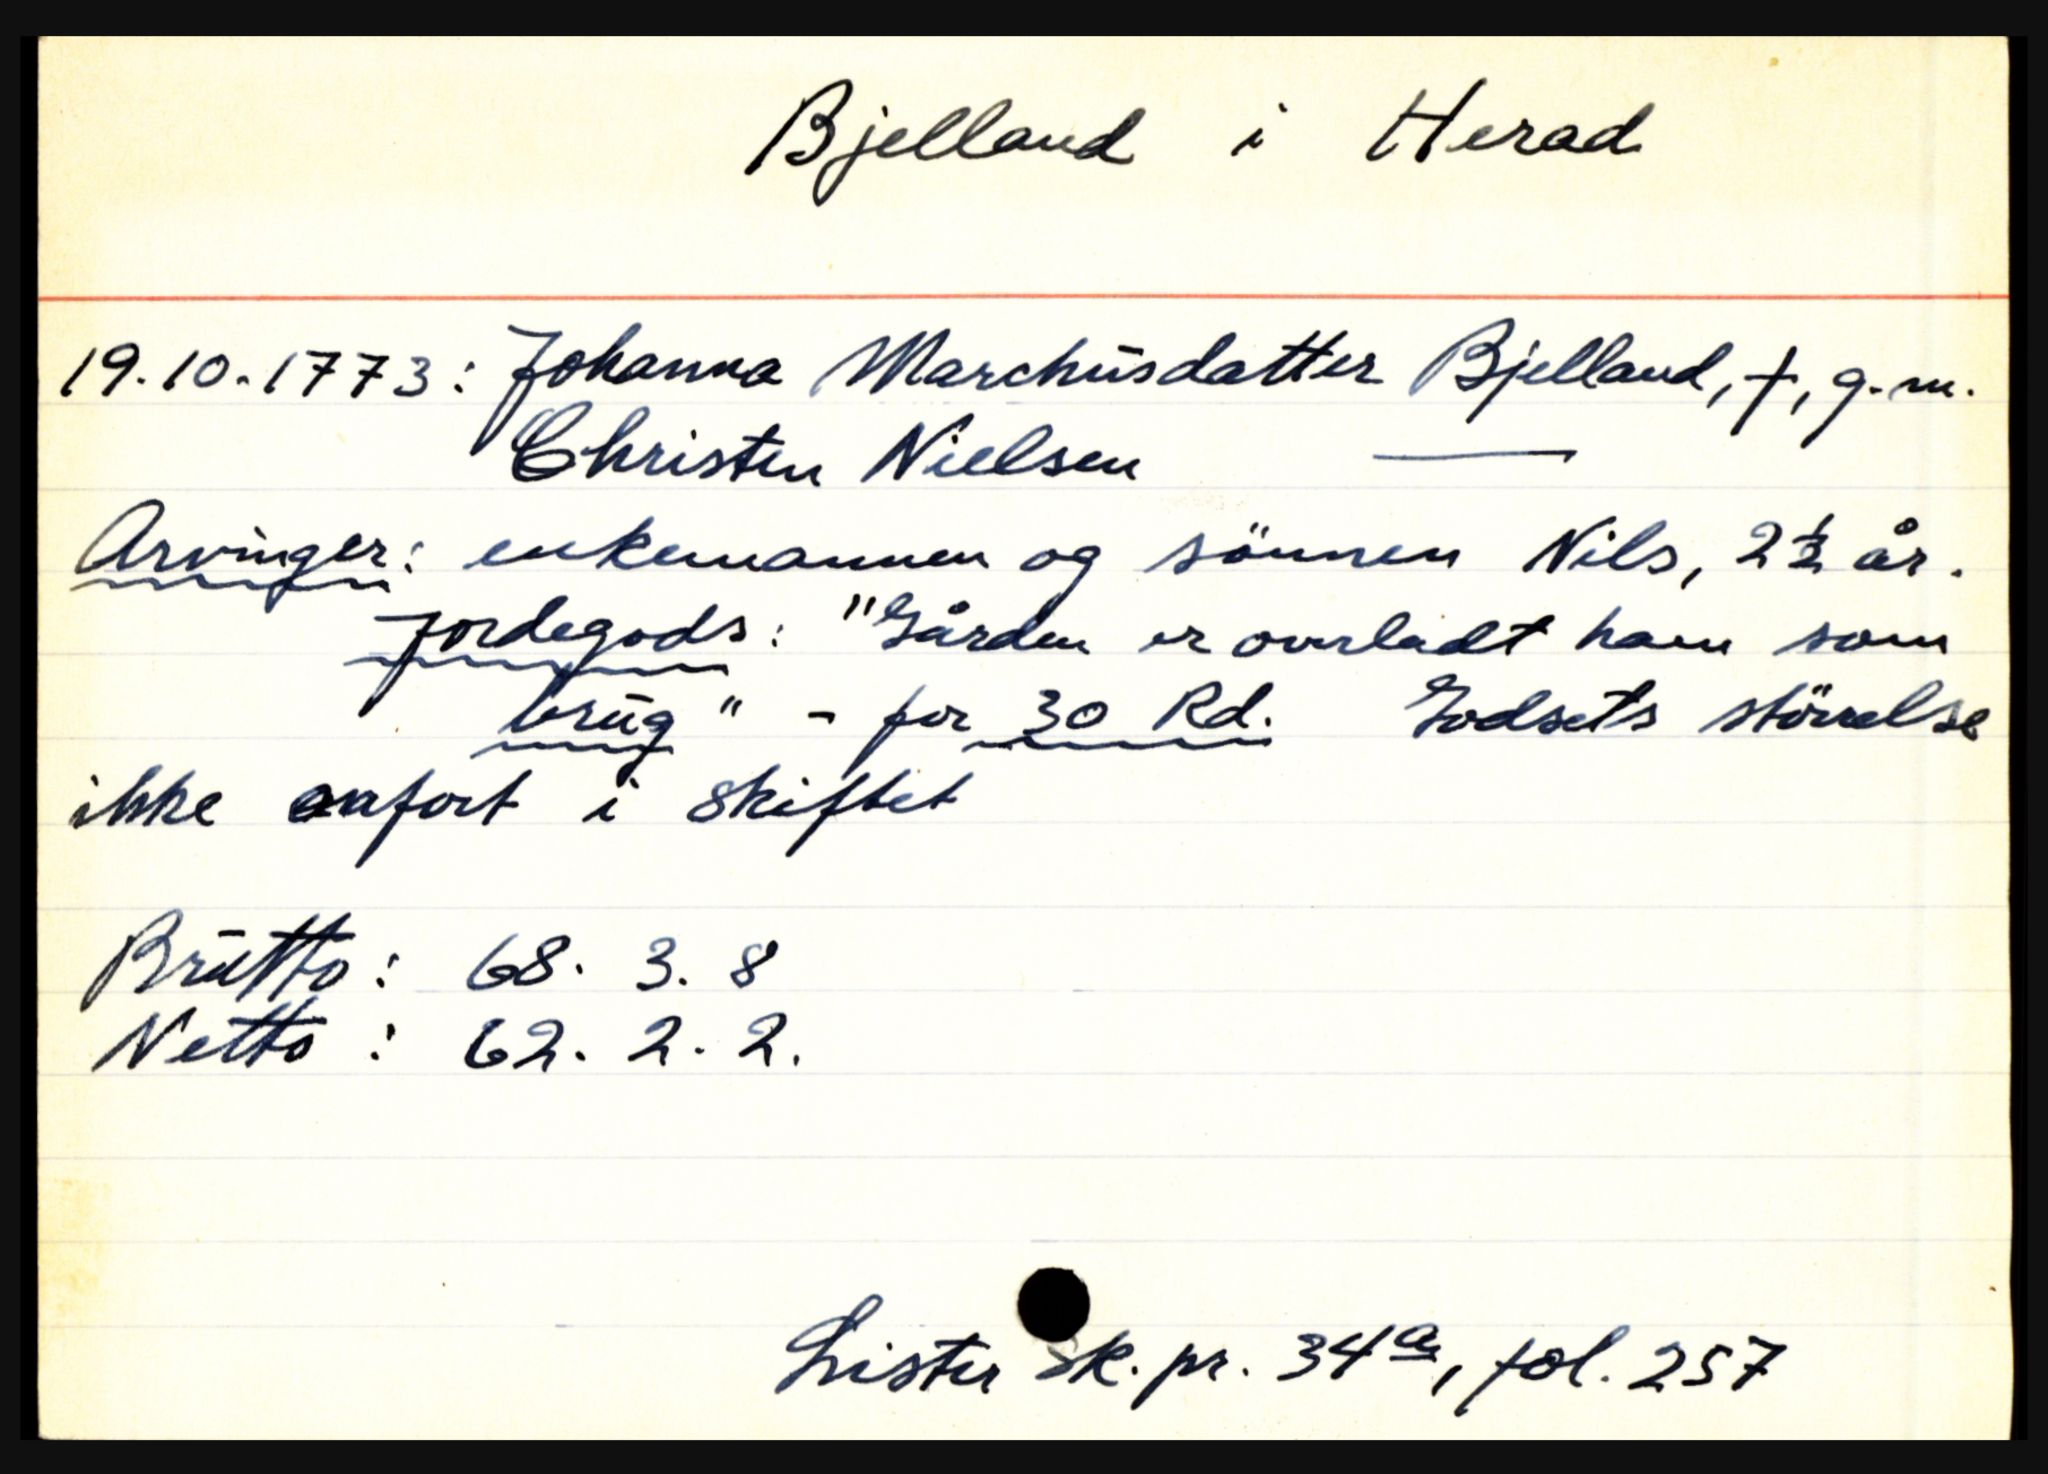 Bjelland i Herad
19.10.1773: Johanna Marchusdatter Bjelland, †, g.m.
Christen Nielsen —
Arvinger: enkemannen og sönnen Nils, 2½ år.
Jordegods: "Gården er overladt ham som
brug" - for 30 Rd. Godsets störrelse
ikke anfört i skiftet
Brutto: 68. 3. 8
Netto: 62. 2. 2.
Lister sk.pr. 34a, fol. 257